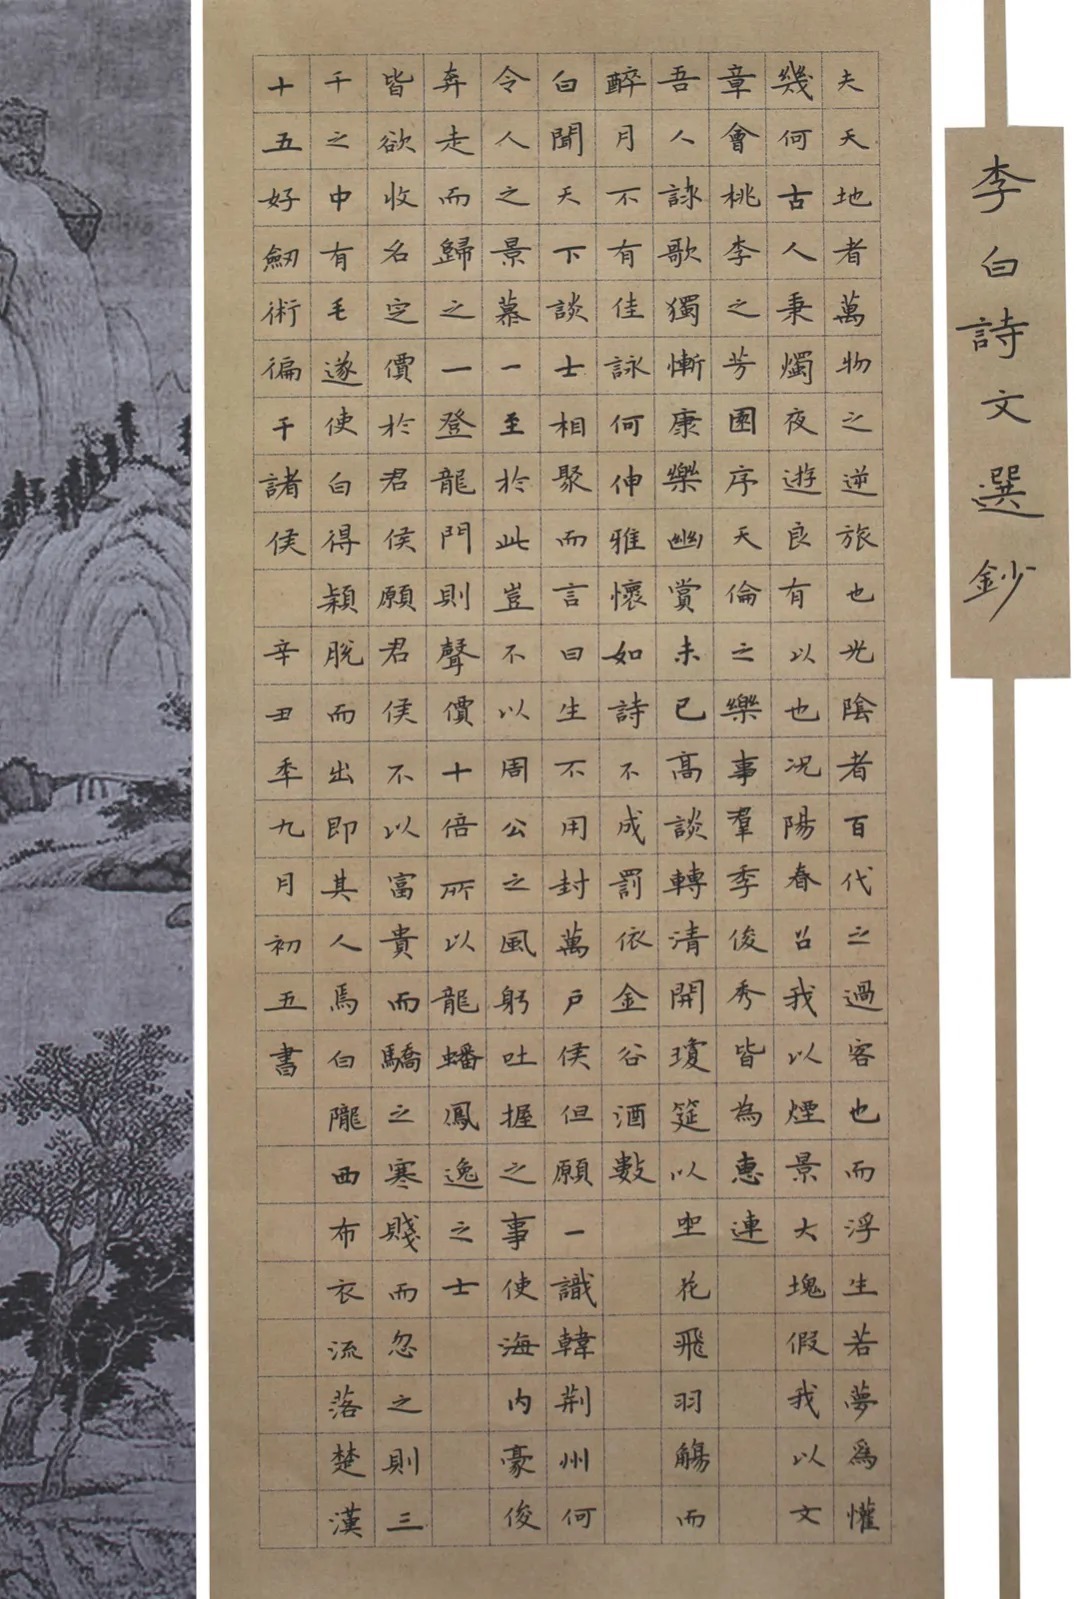 李白詩文選鈔
夫天地者萬物之逆旅也光陰者百代之過客也而浮生若夢爲懽
幾何古人秉燭夜遊良有以也況陽春召我以煙景大塊假我以文
章會桃李之芳園序天倫之樂事羣季俊秀皆為惠連
吾人詠歌獨慚康樂幽賞未已高談轉清開瓊筵以坐花飛羽觴而
醉月不有佳詠何伸雅懷如詩不成罰依金谷酒數
白聞天下談士相聚而言曰生不用封萬戶侯但願一識韓荊州何
令人之景慕一至於此豈不以周公之風躬吐握之事使海內豪俊
奔走而歸之一登龍門則聲價十倍所以龍蟠鳳逸之士
皆欲收名定價於君侯願君侯不以富貴而驕之寒賤而忽之則三
千之中有毛遂使白得穎脫而出即其人焉白隴西布衣流落楚漢
十五好劒術徧干諸侯 辛丑秊九月初五書